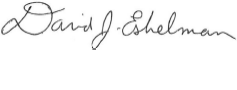 David J. Eshelman